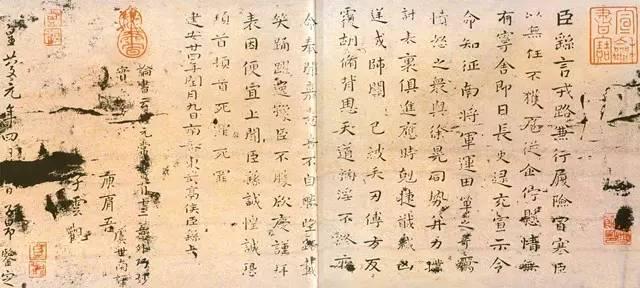 臣繇言戎路兼行履險冒寒臣
以無任不獲扈從企佇懸情無
有寧舍即日長史逯充宣示令
命知征南將軍運田單之奇厲
憤怒之衆與徐晃同勢并力撲
討表裏俱進應時剋捷馘滅凶
逆賊帥關 已被矢刃傅方反
覆胡脩背恩天道禍淫不終厥
命奉聞嘉憙喜不自勝望路載
笑踊躍逸豫臣不勝欣慶謹拜
表因便宜上聞臣繇誠惶誠恐
頓首頓首死罪死罪
建安廿四年閏月九日南蕃東武亭侯臣繇上
虞世南
庾肩吾
子雲觀
皇慶元年四月 鑒定